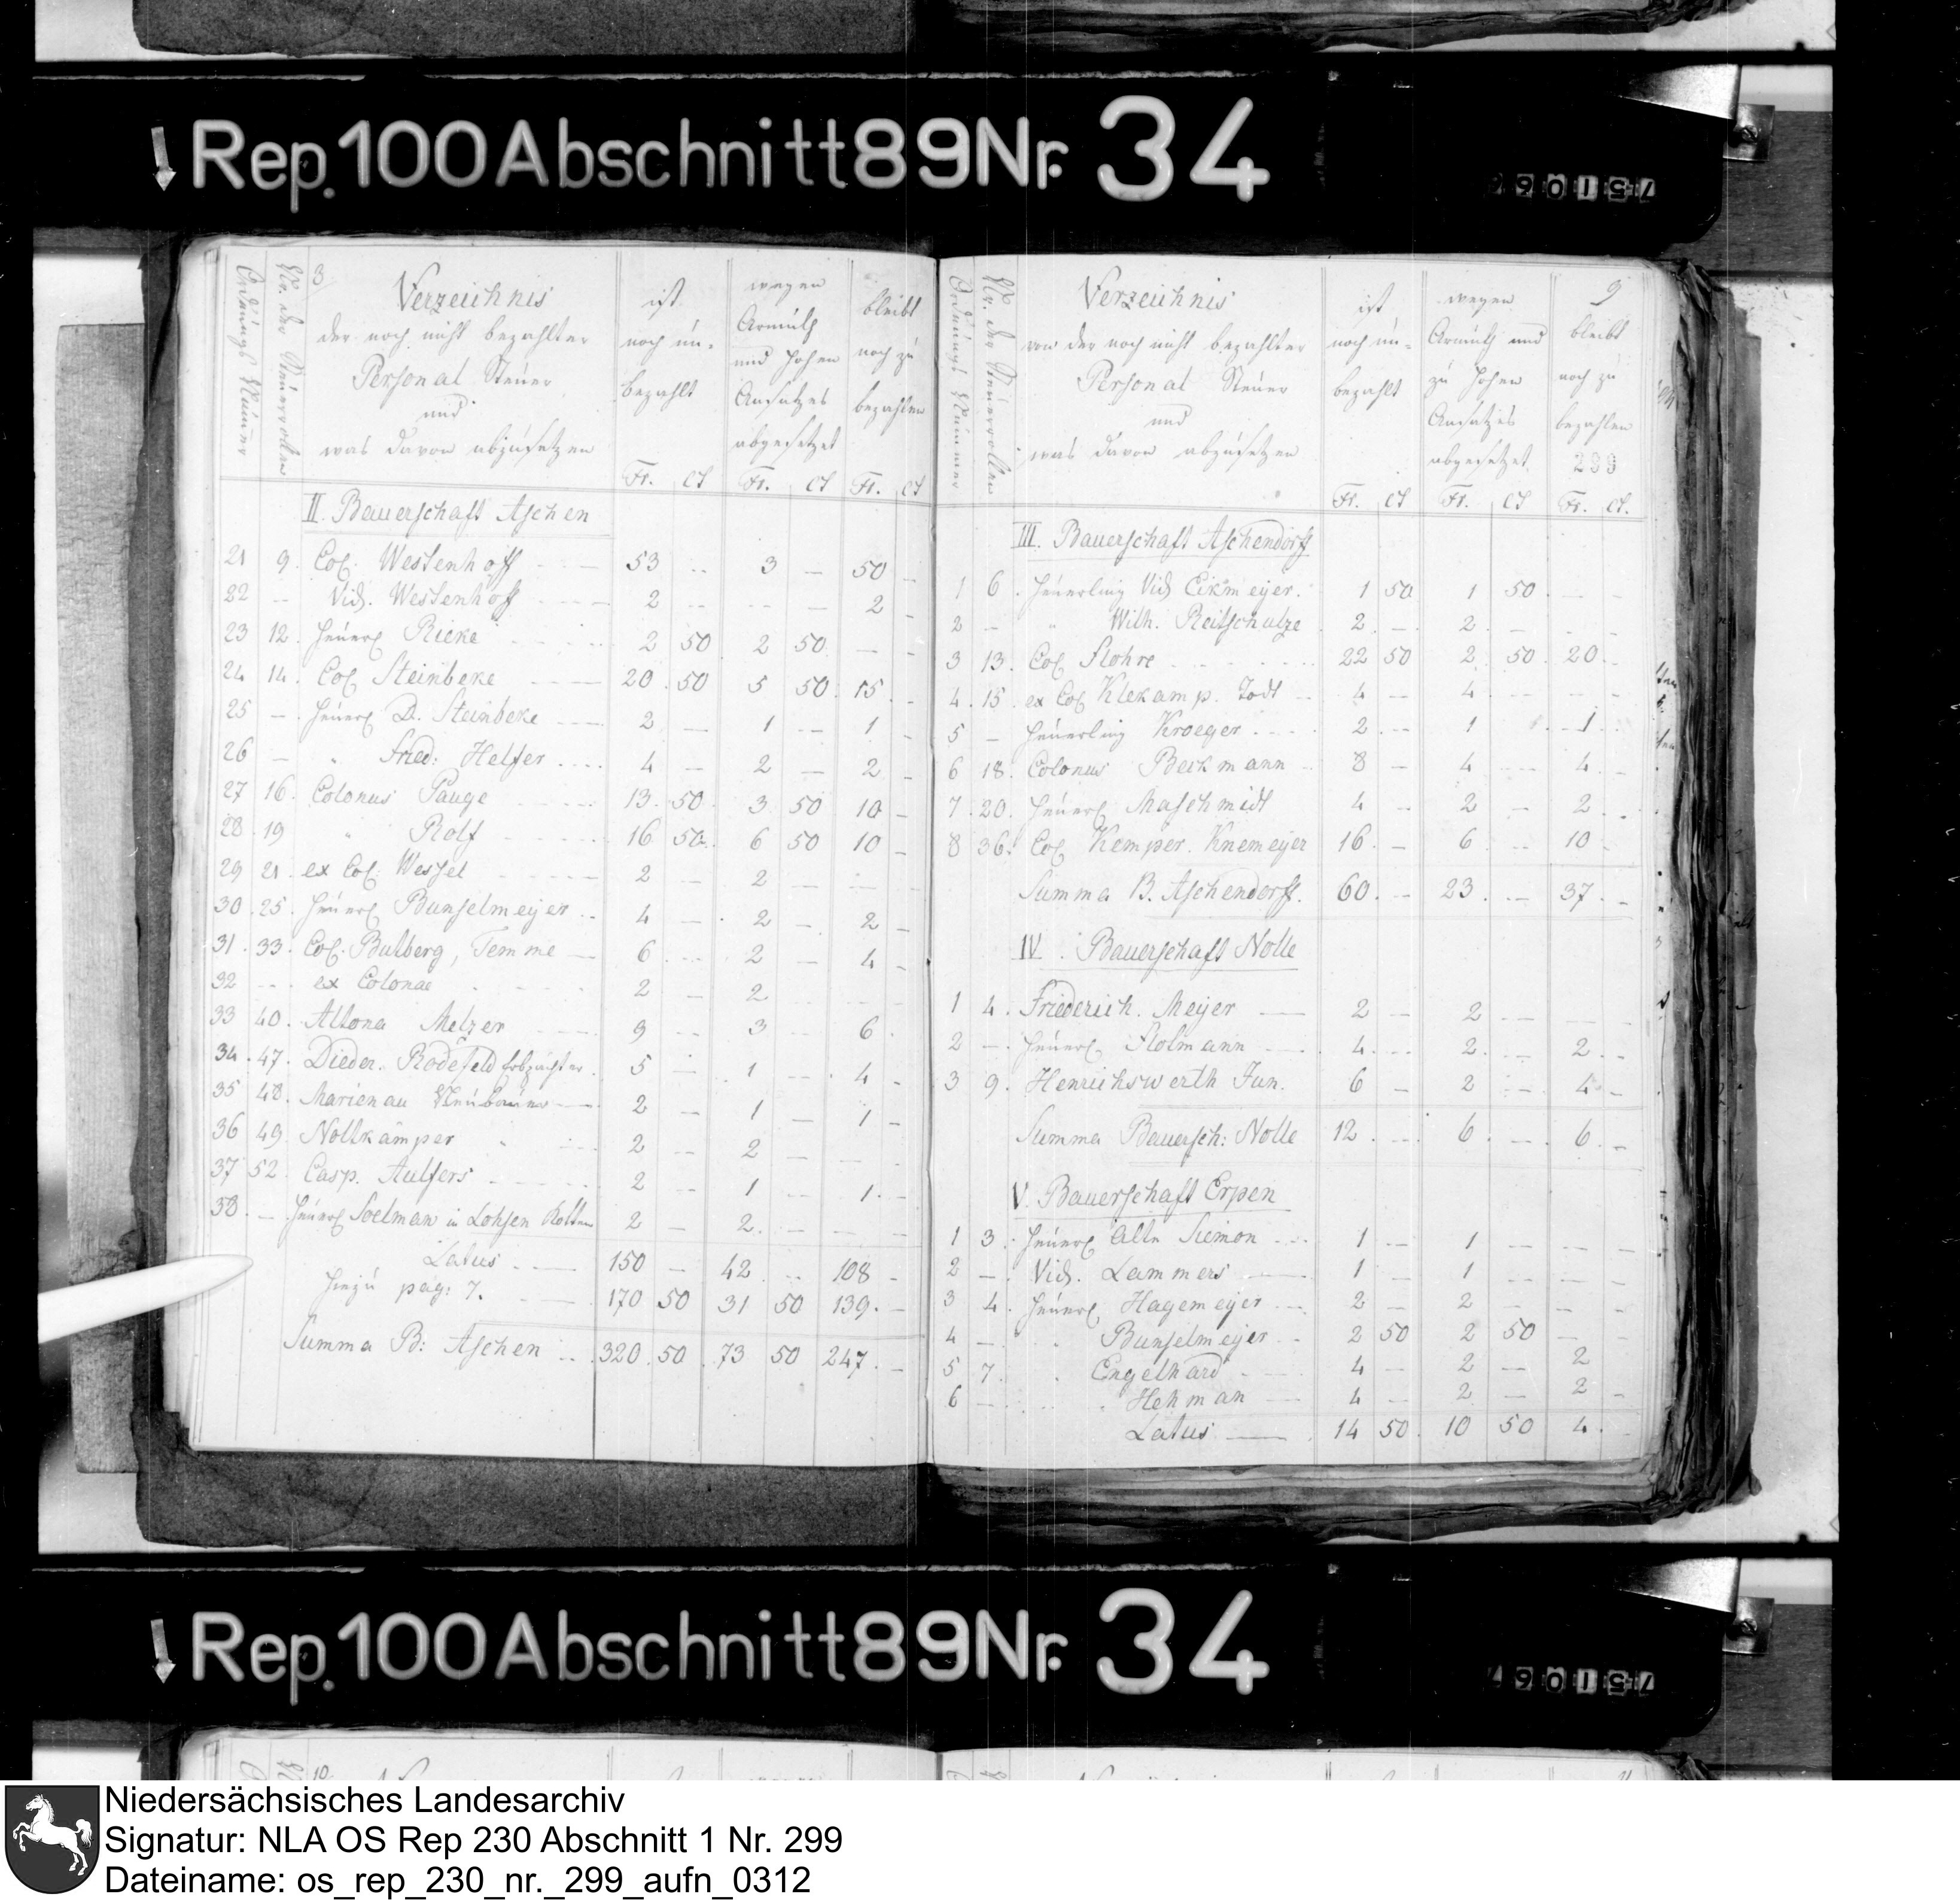 Rep. 100 Abschnitt 89 Nr. 34
751066
Ordnungs Nummer
Nr. der Steuerrollen
Verzeichnis
der noch nicht bezahlter
Personal Steuer
und
was davon abzusetzen
ist
noch un-
bezahlt
wegen
Armuth
und hohen
Ansatzes
abgesetzt
bleibt
noch zu
bezahlen
Fr. Ct Fr. Ct Fr. Ct
II. Bauerschaft Aschen
21 9. Col. Westenhoff 53 .. 3 — 50 —
22 -- Vid. Westenhoff 2 -- -- — 2 —
23 12. Heuerl Rieke 2 50 2 50 — —
24 14. Col Steinbeke 20 50 5 50 15 -
25 — Heuerl D. Steinbeke 2 — 1 -- 1 -
26 — " Fried: Helfer 4 — 2 — 2 -
27 16. Colonus Pauge 13. 50 3 50 10 -
28. 19 " Rolf 16 50 6 50 10 -
29 21. ex Col. Wessel 2 — 2 — — -
30. 25. Heuerl Bunselmeyer 4 — 2 — 2 -
31. 33. Col. Butberg, Temme 6 -- 2 — 4 -
32 -- ex Colonae 2 — 2 -- --
33 40. Altona Melzer 9 -- 3 -- 6
34. 47. Dieder. Rodefeld Erbpächter 5 — 1 -- 4 -
35 48. Marienau Neubauer 2 — 1 — 1 -
36 49. Nollkämper " 2 — 2 — —
37 52. Casp. Aulfers 2 — 1 -- 1. -
38. — Heuerl Soelman in Lohsen Kotten 2 — 2. — — —
Latus 150 — 42 .. 108 -
hiezu pag: 7. 170 50 31 50 139. -
Summa B: Aschen .. 320. 50 73 50 247. -
Ordnungs Nummer
Nr. der Steuerrollen
Verzeichnis
von der noch nicht bezahlter
Personal Steuer
und
was davon abzusetzen
ist
noch un-
bezahlt
wegen
Armuth und
zu hohen
Ansatzes
abgesetzt
9
bleibt
noch zu
bezahlen
299
Fr. Ct Fr. Ct Fr. Ct.
III. Bauerschaft Aschendorff
1 6. Heuerling Vid Eikmeyer. 1 50 1 50 — —
2 — " Wilh. Reitschulze 2 — 2 — - -
3 13. Col Flohre 22 50 2 50 20. -
4. 15. ex Col Klekamp. Todt 4 — 4 -- - -
5 — Heuerling Kroeger 2 -- 1 1
6 18. Colonus Beckmann 8 — 4 -- 4. -
7. 20. Heuerl Maschmidt 4 -- 2 — 2 -
8 36. Col Kemper. Knemeyer 16. — 6 -- 10 -
Summa B. Aschendorff. 60. — 23. -- 37. -
IV. Bauerschaft Nolle
1 4. Friederich. Meyer 2 — 2 -- --
2 — Heuerl. Holmann 4. -- 2. -- 2. -
3 9. Henrichswerth Jun. 6 — 2 -- 4 -
Summa Bauersch: Nolle 12. -- 6. -- 6. -
V. Bauerschaft Erpen
1 3. Heuerl Alte Siemon 1 -- 1 -- --
2 — Vid. Lammers 1 — 1 -- --
3 4. Heuerl Hagemeyer 2 -- 2 — — -
4 — " Bunselmeyer 2 50 2 50 — -
5 7. " Engelhard 4 — 2 — 2
6 — " Hehman 4 -- 2 — 2 -
Latus 14 50. 10 50 4.
Rep. 100 Abschnitt 89 Nr. 34
751067
10
Niedersächsisches Landesarchiv
Signatur: NLA OS Rep 230 Abschnitt 1 Nr. 299
Dateiname: os_rep_230_nr._299_aufn_0312